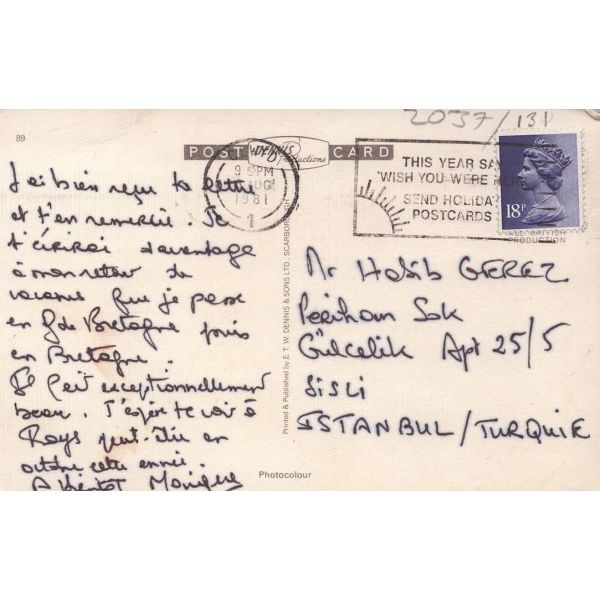 2037/131
89
POST Dennis Productions CARD
9 PM
AUG
1981
THIS YEAR SAY
'WISH YOU WERE HERE'
SEND HOLIDAY
POSTCARDS
18P
ALL BRITISH
PRODUCTION
J'ai bien reçu ta lettre
et t'en remercie. Je
t'écrirai davantage
à mon retour de
vacances que je passe
en Gde Bretagne puis
en Bretagne.
Il fait exceptionnellement
beau. J'espère te voir à
peut-être en
octobre cette année.
A bientôt Monique
Printed & Published by E. T. W. DENNIS & SONS LTD. SCARBOROUGH
Mr Habib GEREZ
Perihan Sok
Gülcelik Apt 25/5
SISLI
ISTANBUL/TURQUIE
Photocolour